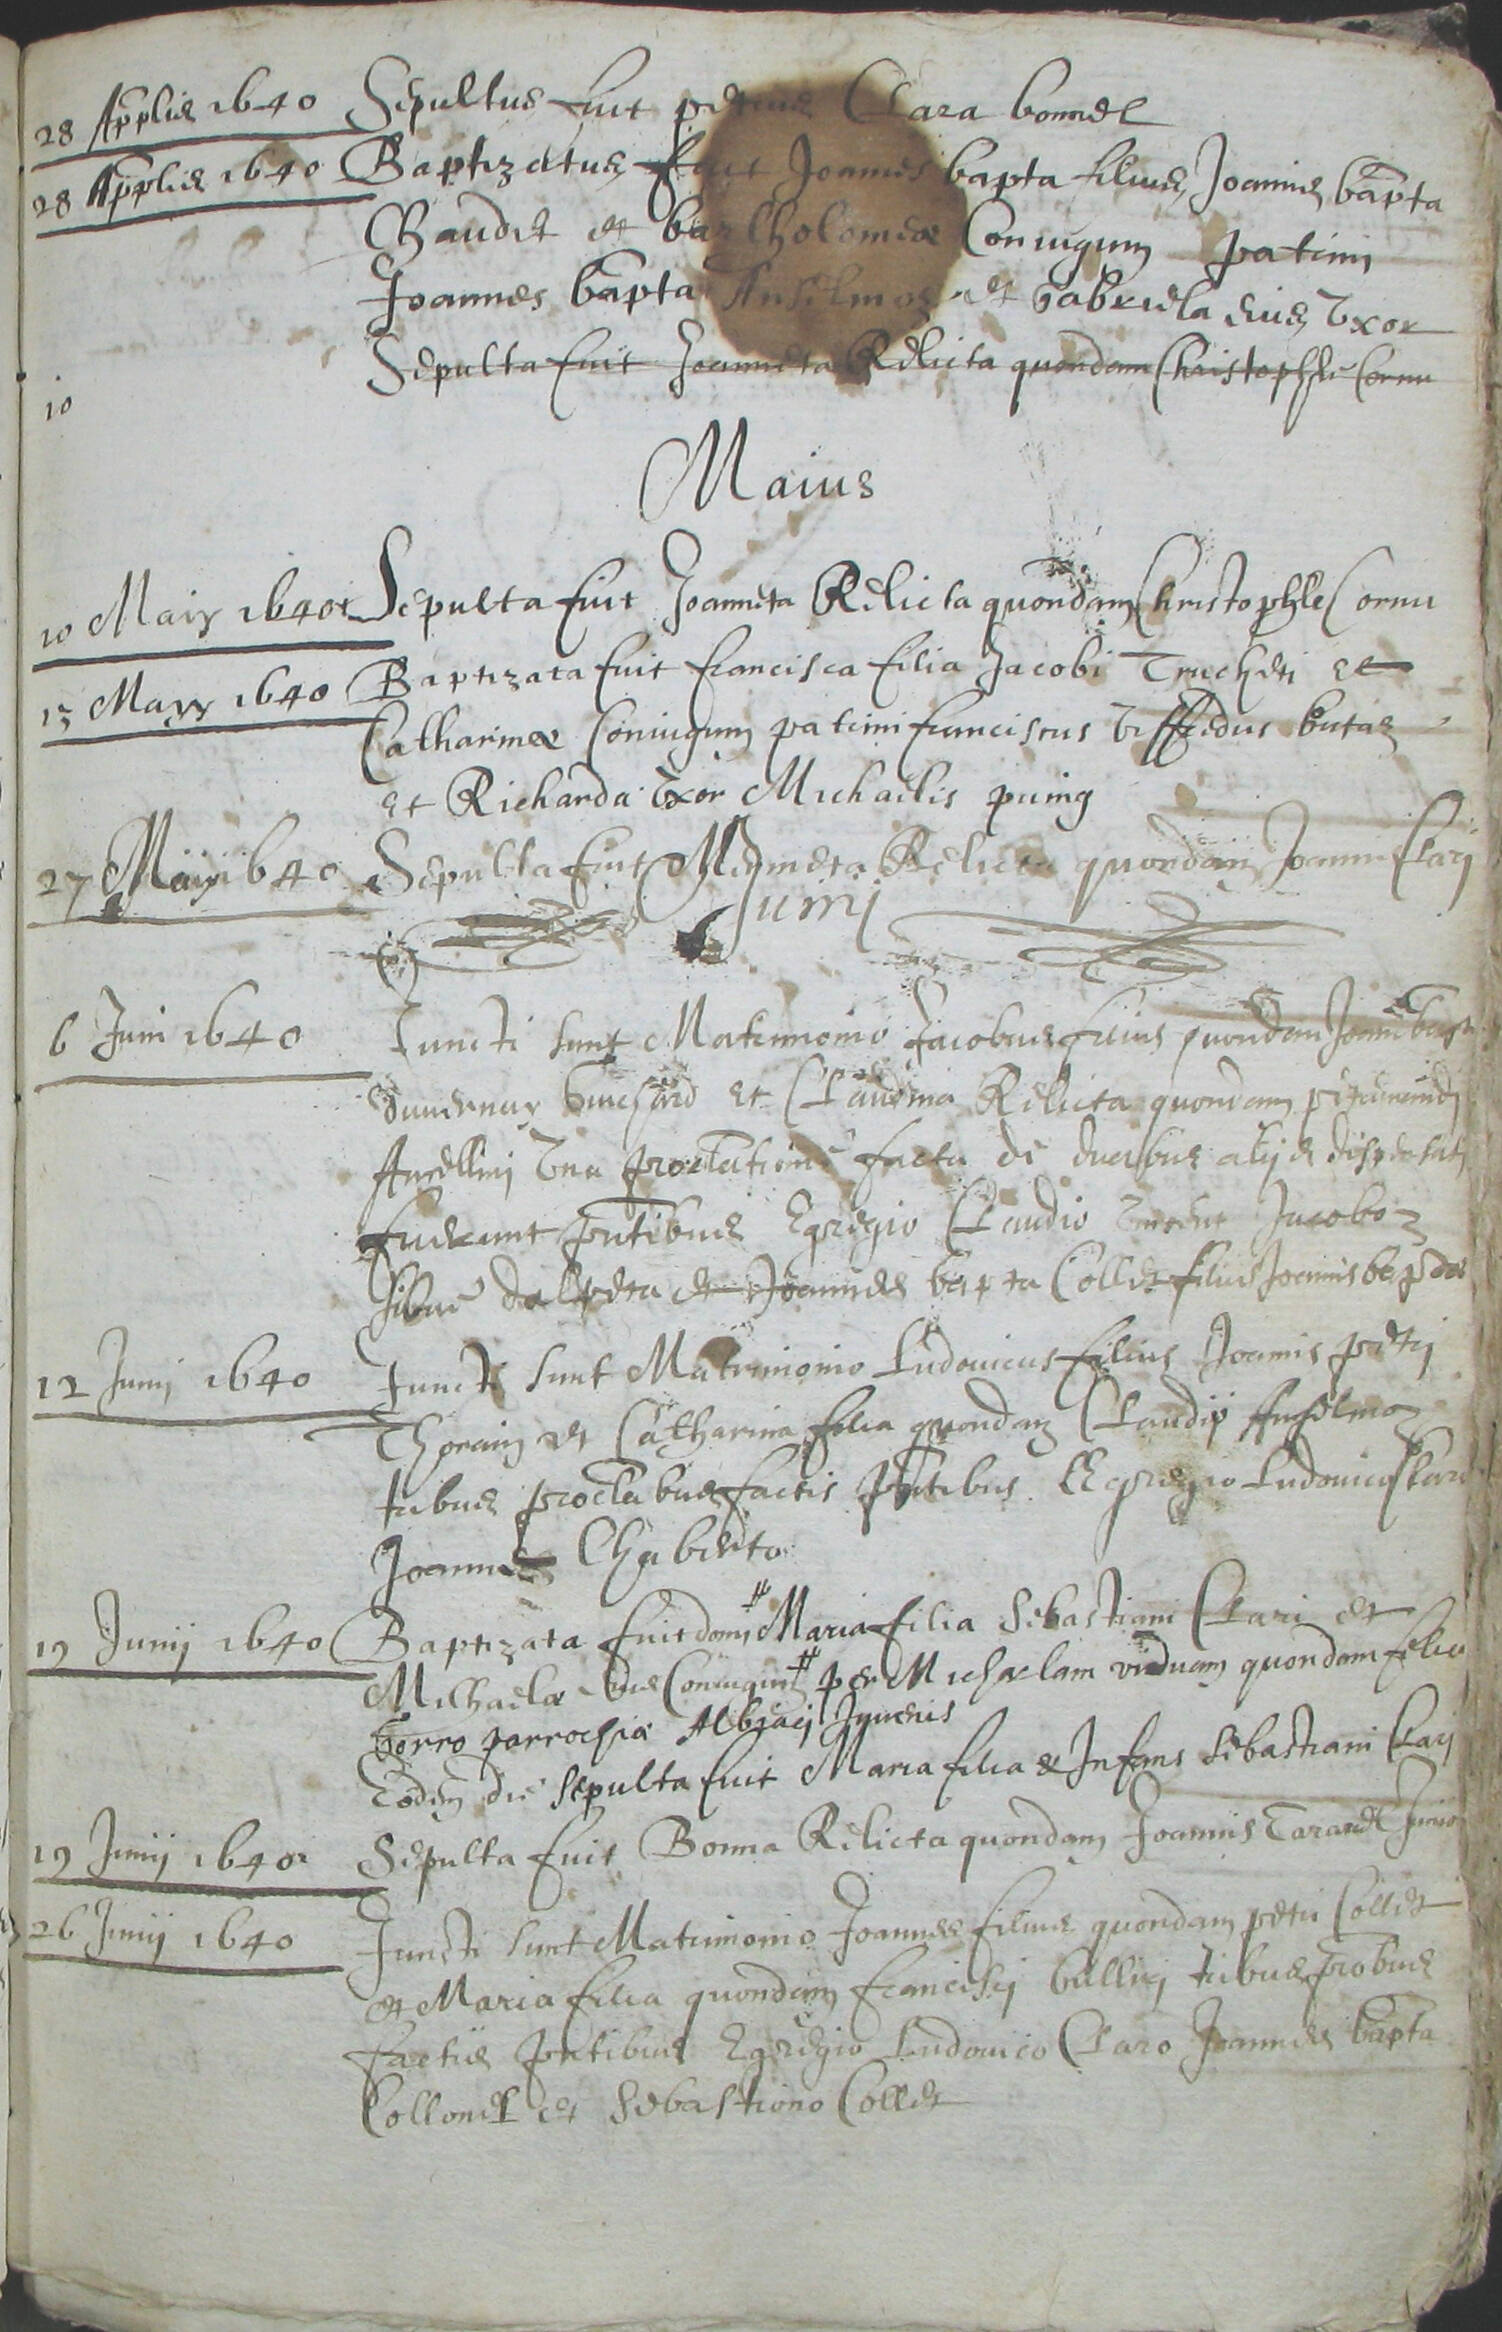 28 Applis 1640 Sepultus fuit petrus Clara bonnel
28 Applis 1640 Baptizatus fuit Joannes bapta filius Joannis bapta
Gaudet et bartholomeæ Coniugum patrini
Joannes bapta Anselmoz et Gabriela eius Vxor
Sepulta fuit Joanneta Relicta quondam Christophle Cornu
10
Maius
10 Maii 1640 Sepulta fuit Joanneta Relicta quondam Christophle Cornu
15 Maii 1640 Baptizata fuit francisca filia Jacobi Trucheti et
Catharinæ Coniugum patrini franciscus
et Richarda Vxor Michaelis puing
27 Maii 1640 Sepulta fuit Relicta quondam Joannis Clarj
Junij
6 Juni 1640 Iuncti sunt Matrimonio Jacobus filius quondam
et Claudina Relicta quondam
Vna proclatione facta de duabus alijs
fuerunt pntibus Egregio Claudio Jacobo
et Joannes bapta Collet filius Joannis
12 Junij 1640 Iuncti sunt Matrimonio Ludouicus filius Joannis petri
Thorain et Catharina filia quondam Claudij Anselmoz
tribus proclabus factis pntibus Egregio Ludouico Claro
Joannes Chaberto
13 Junij 1640 Baptizata fuit domi # Maria filia Sebastiani Clari et
Michaelæ eius Coniugum # per Michaelam viduam quondam
borro parrochiæ Albiacj Juuenis
Eodem die sepulta fuit Maria filia & Infans Sebastiani Clarj
19 Junij 1640 Sepulta fuit Bonna Relicta quondam Joannis Tarauel
26 Junij 1640 Iuncti sunt Matrimonio Joannes filius quondam petri Collet
et Maria filia quondam francisci tribus probus
factis pntibus Egregio Ludouico Claro Joannes bapta
Collonel et Sebastiano Collet